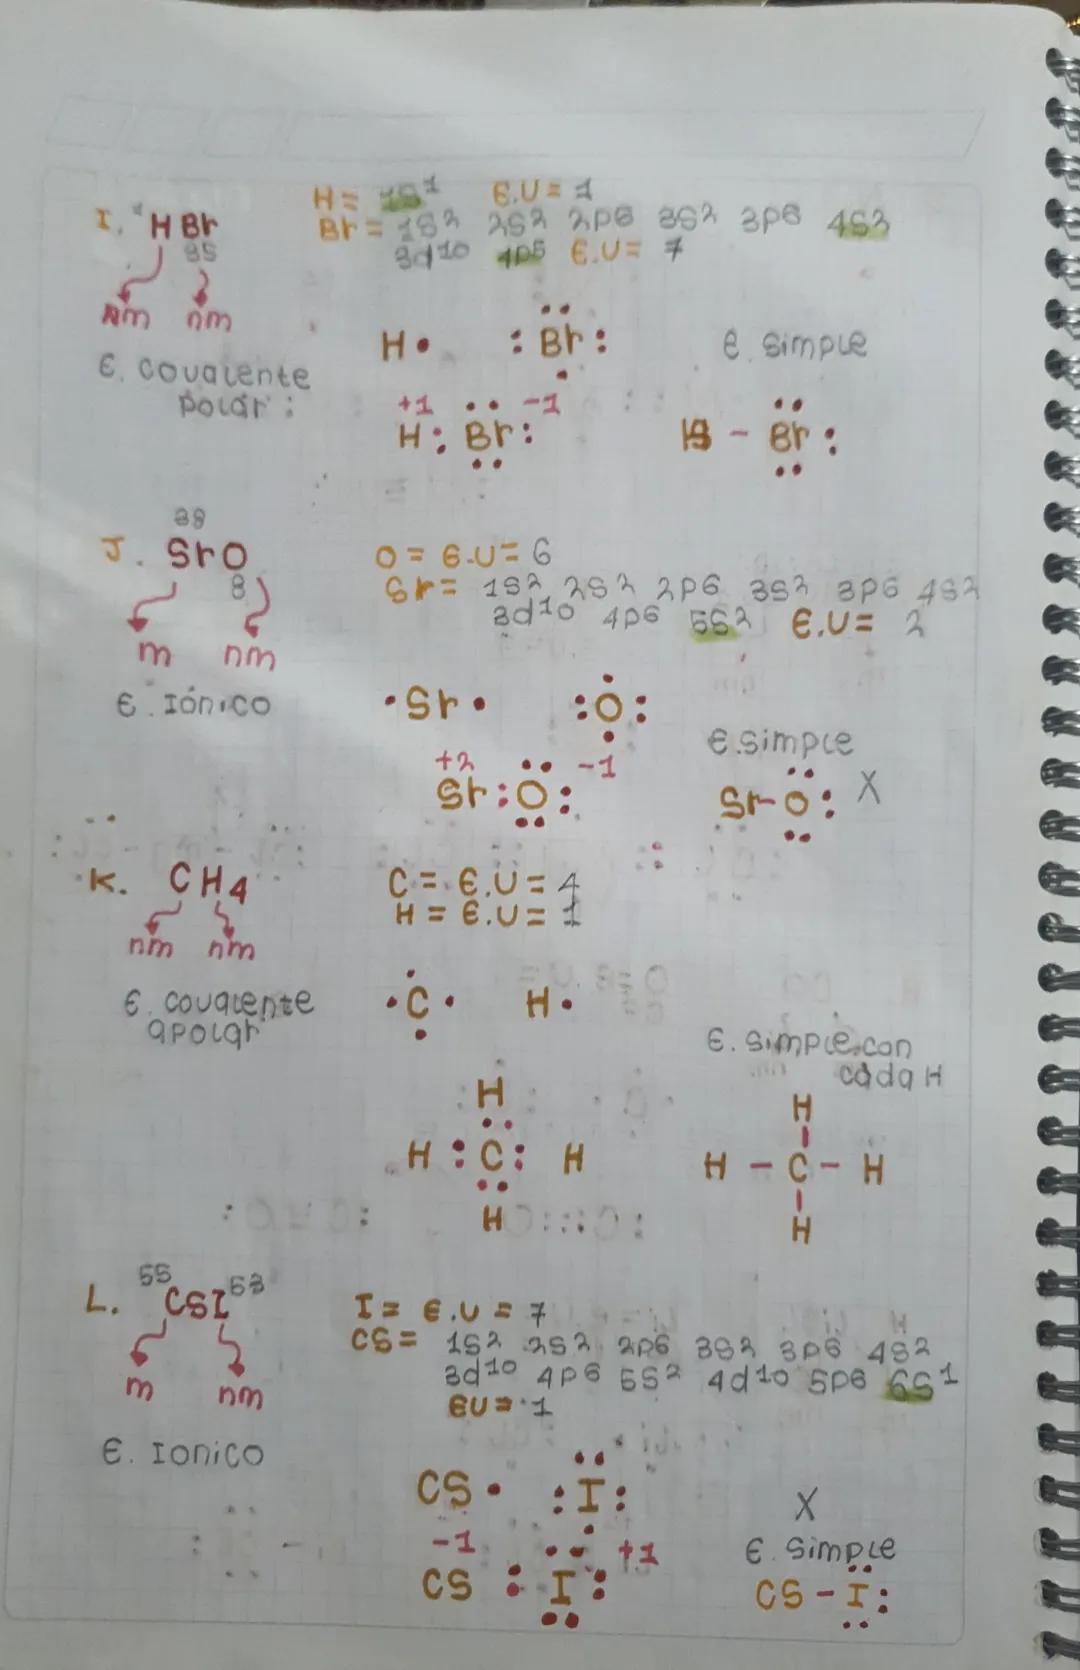 I. ¹HBr
35
nm nm
E. covalente
polar:
H = 1s1 E.V = 1
Br = 1s2 2s2 2p6 3s2 3p6 4s2
3d10 4p5 E.V = 7
H• Br
E. simple
+1 -1
H: Br:
H - Br:
38
J. SrO
8
m nm
E. Iónico
O = E.V = 6
Sr = 1s2 2s2 2p6 3s2 3p6 4s2
3d10 4p6 5s2 E.V = 2
•Sr• :O:
E. simple
+2 -1
Sr:O:
Sr-O: X
K. CH4
nm nm
E. covalente
apolar
C = E.V = 4
H = E.V = 1
•C• H•
E. simple con
cada H
H
H : C : H
H
H
H - C - H
H
L. 55 CSI 53
m nm
E. Ionico
I = E.V = 7
CS = 1s2 2s2 2p6 3s2 3p6 4s2
3d10 4p6 5s2 4d10 5p6 6s1
EV = 1
CS• :I:
-1 +1
CS : I:
X
E. simple
CS - I: